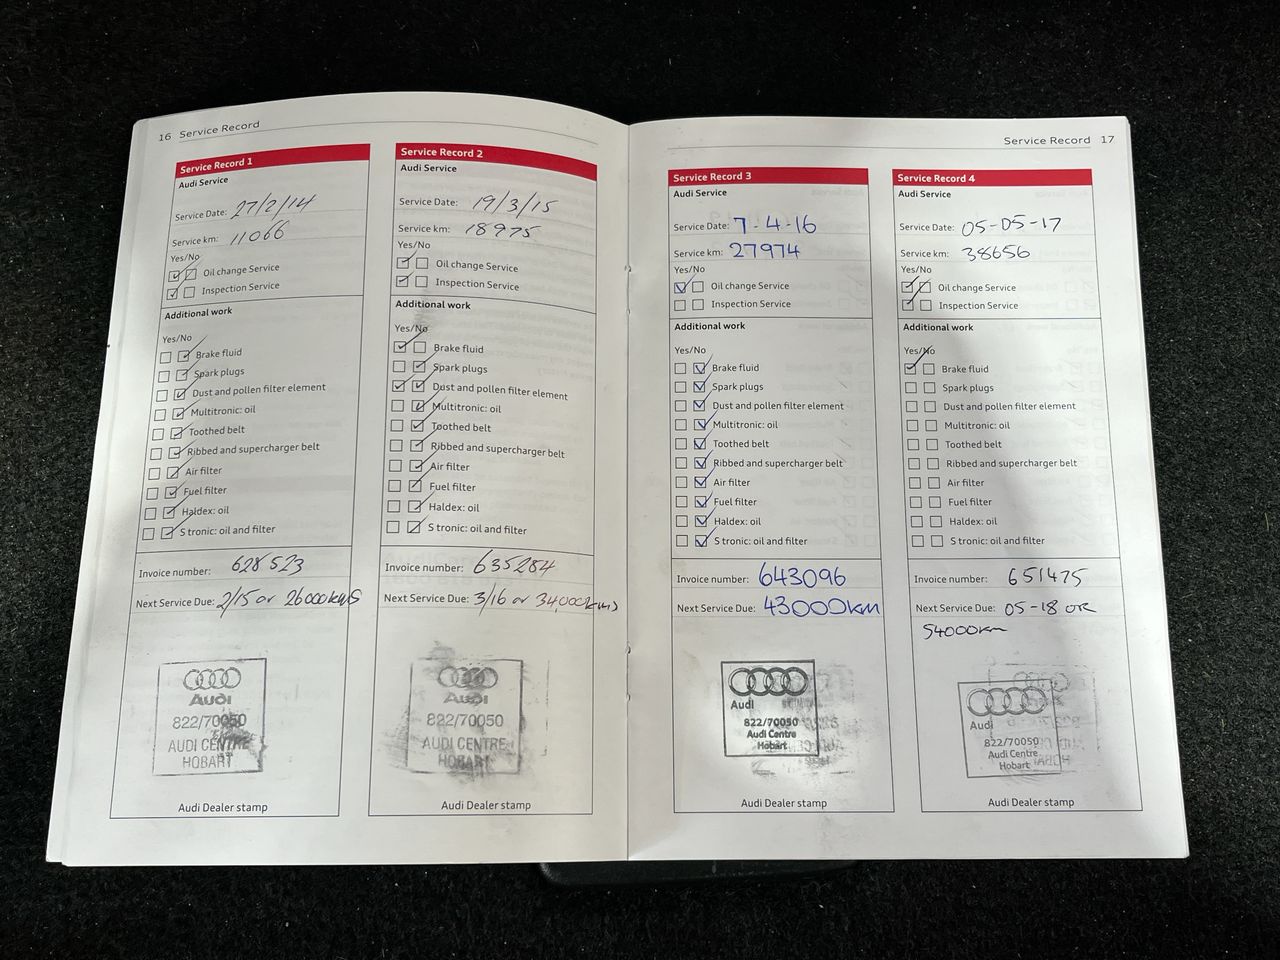 16 Service Record
Service Record 1
Audi Service
Service Date: 27/2/14
Service km: 11066
Yes/No
Oil change Service
Inspection Service
Additional work
Yes/No
Brake fluid
Spark plugs
Dust and pollen filter element
Multitronic: oil
Toothed belt
Ribbed and supercharger belt
Air filter
Fuel filter
Haldex: oil
S tronic: oil and filter
Invoice number: 628523
Next Service Due: 2/15 or 26000kms
Audi
822/70050
AUDI CENTRE
HOBART
Audi Dealer stamp
Service Record 2
Audi Service
Service Date: 19/3/15
Service km: 18975
Yes/No
Oil change Service
Inspection Service
Additional work
Yes/No
Brake fluid
Spark plugs
Dust and pollen filter element
Multitronic: oil
Toothed belt
Ribbed and supercharger belt
Air filter
Fuel filter
Haldex: oil
S tronic: oil and filter
Invoice number: 635284
Next Service Due: 3/16 or 34,000kms
Audi
822/70050
AUDI CENTRE
HOBART
Audi Dealer stamp
Service Record 17
Service Record 3
Audi Service
Service Date: 7-4-16
Service km: 27974
Yes/No
Oil change Service
Inspection Service
Additional work
Yes/No
Brake fluid
Spark plugs
Dust and pollen filter element
Multitronic: oil
Toothed belt
Ribbed and supercharger belt
Air filter
Fuel filter
Haldex: oil
S tronic: oil and filter
Invoice number: 643096
Next Service Due: 43000km
Audi
822/70050
Audi Centre
Hobart
Audi Dealer stamp
Service Record 4
Audi Service
Service Date: 05-05-17
Service km: 38656
Yes/No
Oil change Service
Inspection Service
Additional work
Yes/No
Brake fluid
Spark plugs
Dust and pollen filter element
Multitronic: oil
Toothed belt
Ribbed and supercharger belt
Air filter
Fuel filter
Haldex: oil
S tronic: oil and filter
Invoice number: 651475
Next Service Due: 05-18 OR
54000km
Audi
822/70050
Audi Centre
Hobart
Audi Dealer stamp